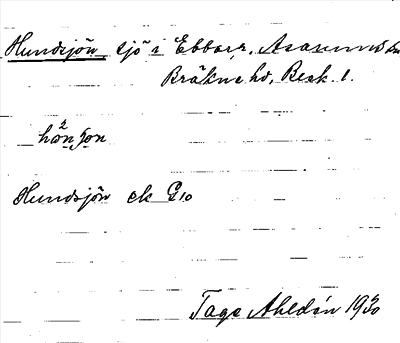 Hundsjön sjö i Ebbarp, Asarums sn
Bräkne hd, Blek. l.
hò̀n ʃon
Hundsjön ek G10
Tage Ahldén 1930